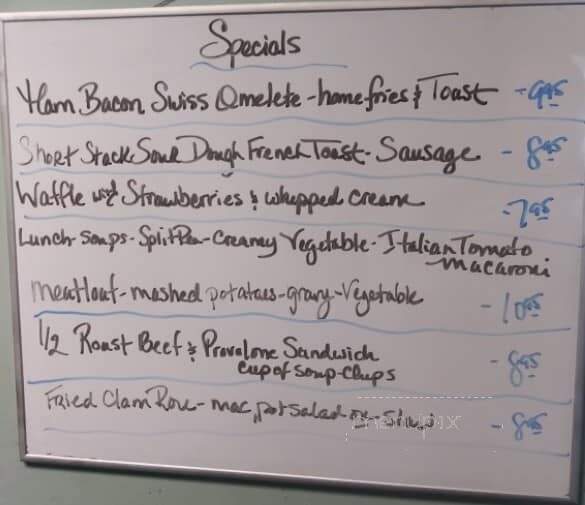 Specials
Ham Bacon Swiss Omelete - homefries & Toast - 9.95
Short Stack Sour Dough French Toast - Sausage - 8.95
Waffle with Strawberries & whipped cream - 7.95
Lunch - Soups - Split Pea - Creamy Vegetable - Italian Tomato
Macaroni
meatloaf - mashed potatoes - gravy - Vegetable - 10.95
1/2 Roast Beef & Provolone Sandwich - 8.95
cup of soup - chips
Fried Clam Role - mac, pot salad - 8.95
menupix